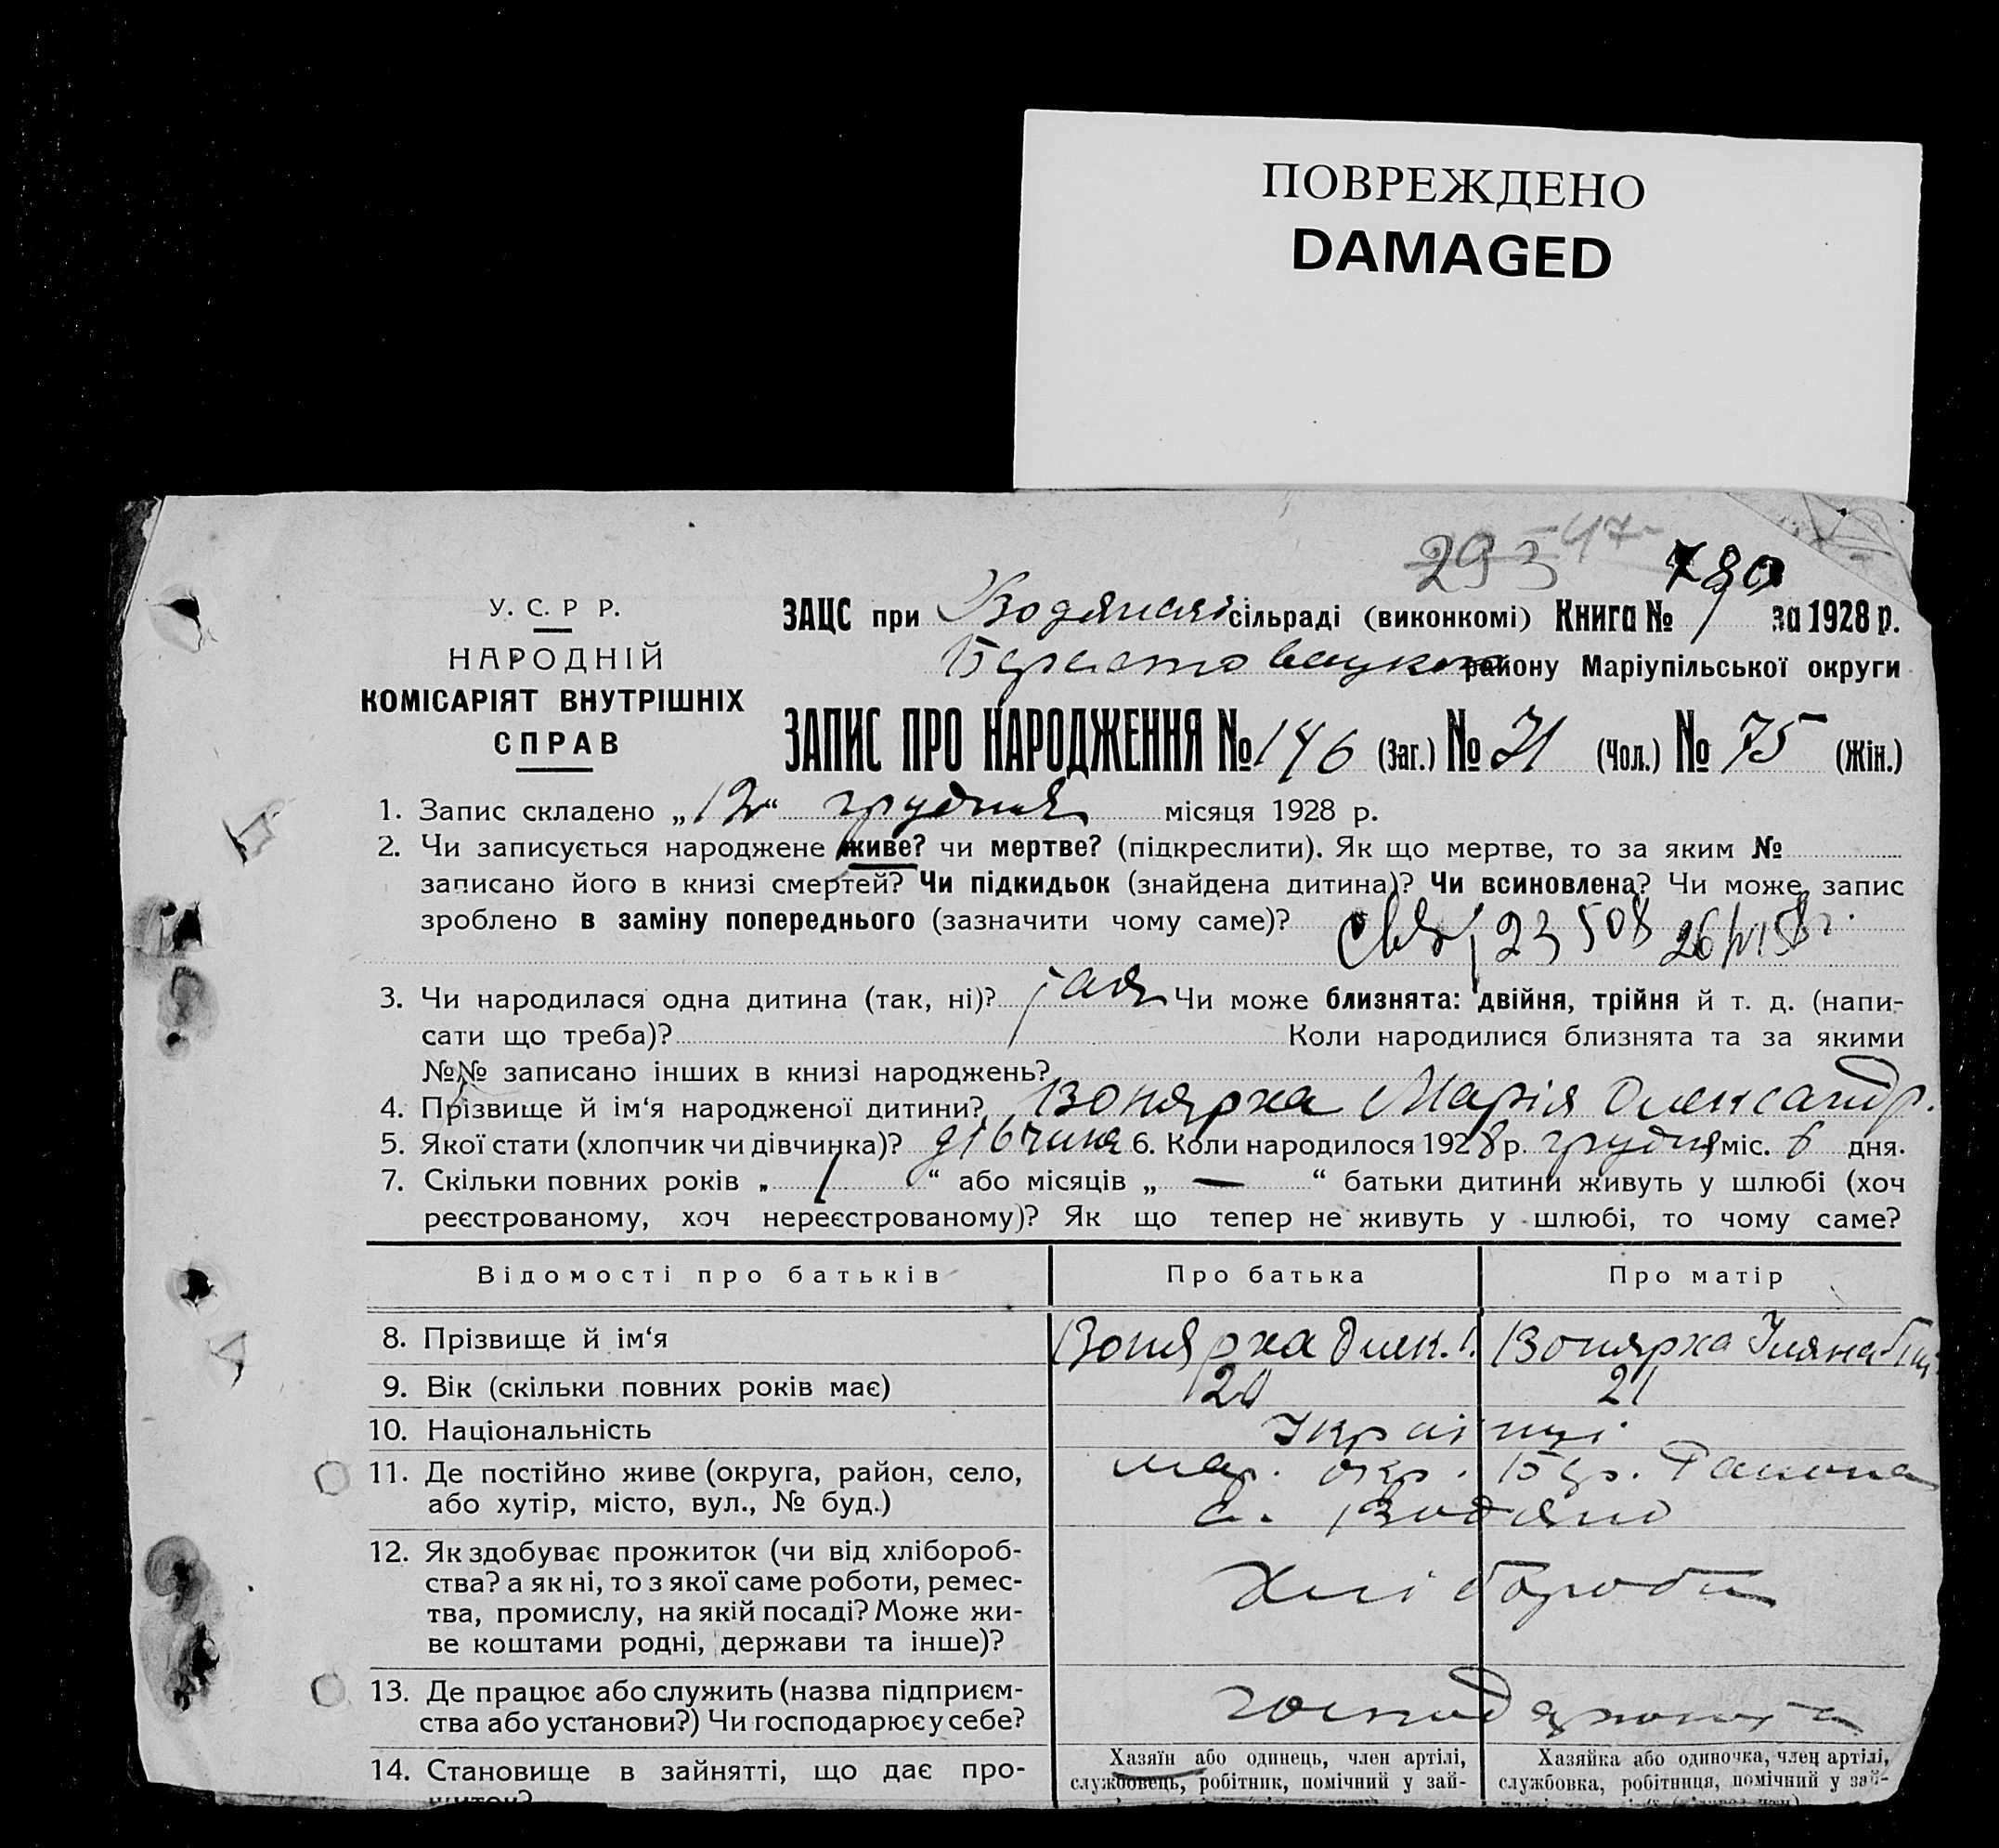 ПОВРЕЖДЕНО
DAMAGED
293 47
780
У. С. Р Р.
НАРОДНІЙ
КОМІСАРІЯТ ВНУТРІШНІХ
СПРАВ
ЗАЦС при Водянській сільраді (виконкомі) Книга № 1 за 1928 р.
району Маріупільської округи
ЗАПИС ПРО НАРОДЖЕННЯ № 146 (Заг.) № 71 (Чол.) № 75 (Жін.)
1. Запис складено „12“ грудня місяця 1928 р.
2. Чи записується народжене живе? чи мертве? (підкреслити). Як що мертве, то за яким №
записано його в книзі смертей? Чи підкидьок (знайдена дитина)? Чи всиновлена? Чи може, запис
зроблено в заміну попереднього (зазначити чому саме)?
23508
3. Чи народилася одна дитина (так, ні)? Чи може близнята: двійня, трійня й т. д. (напи-
сати що треба)? Коли народилися близнята та за якими
№№ записано інших в книзі народжень?
4. Прізвище й ім‘я народженої дитини? Вонярха Марія Олександр.
5. Якої стати (хлопчик чи дівчинка)? дівчина 6. Коли народилося 1928 р. грудня міс. 6 дня.
7. Скільки повних років „ 1 “ або місяців „ — “ батьки дитини живуть у шлюбі (хоч
реєстрованому, хоч нереєстрованому)? Як що тепер не живуть у шлюбі, то чому саме?
Відомості про батьків Про батька Про матір
8. Прізвище й ім‘я Вонярха Олек. Вонярха Уляна
9. Вік (скільки повних років має) 20 21
10. Національність Українці
11. Де постійно живе (округа, район, село, мар. окр. Бер. Района
або хутір, місто, вул., № буд.) с. Водяно
12. Як здобуває прожиток (чи від хлібороб-
ства? а як ні, то з якої саме роботи, ремес- Хлібороби
тва, промислу, на якій посаді? Може жи-
ве коштами родні, держави та інше)?
13. Де працює або служить (назва підприєм-
ства або установи?) Чи господарює у себе?
14. Становище в зайнятті, що дає про-
житок?
Хазяїн або одинець, член артілі,
службовець, робітник, помічний у зай-
Хазяйка або одиночка, член артілі,
службовка, робітниця, помічний у зай-